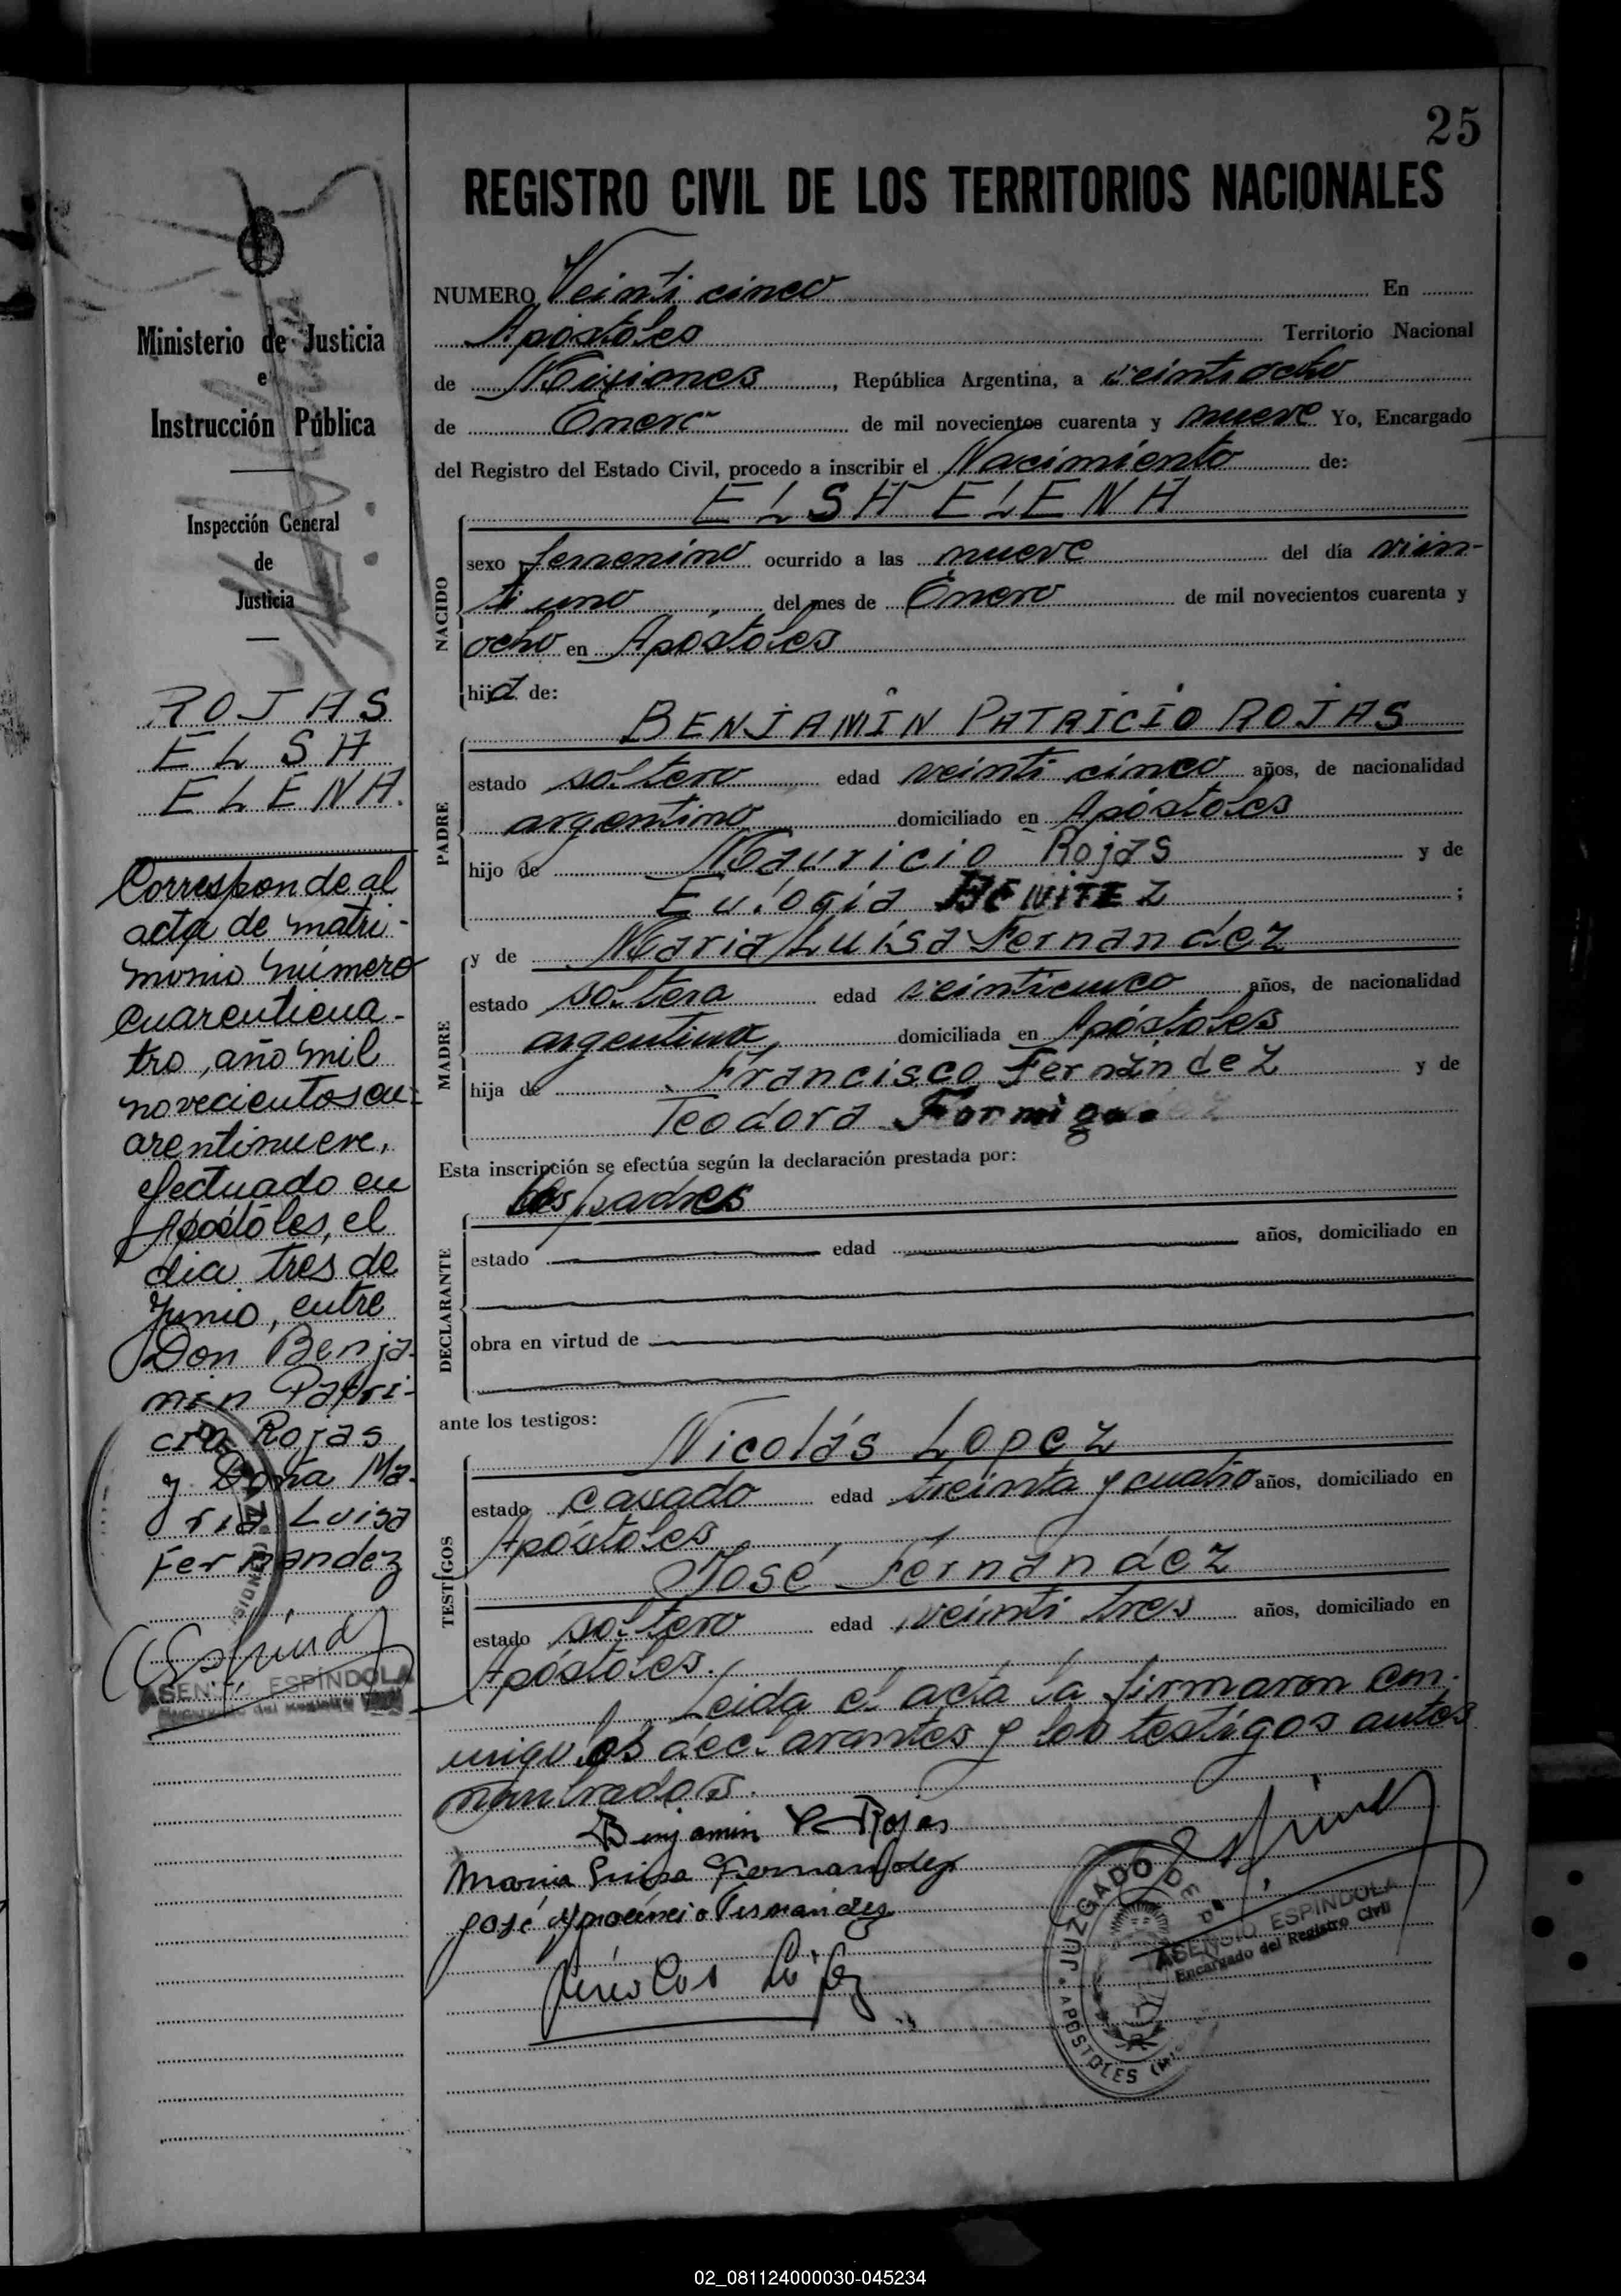 25
REGISTRO CIVIL DE LOS TERRITORIOS NACIONALES
NUMERO Veinti cinco En
Apóstoles Territorio Nacional
de Misiones, República Argentina, a veintiocho
de Enero de mil novecientos cuarenta y nueve Yo, Encargado
del Registro del Estado Civil, procedo a inscribir el Nacimiento de:
ELSA ELENA
NACIDO
sexo femenino ocurrido a las nueve del día viin-
ti uno del mes de Enero de mil novecientos cuarenta y
ocho en Apóstoles
hija de:
BENJAMIN PATRICIO ROJAS
PADRE
estado soltero edad veinti cinco años, de nacionalidad
argentino domiciliado en Apóstoles
hijo de Mauricio Rojas y de
Eulogia BENITEZ ;
y de Maria Luisa Fernandez
MADRE
estado soltera edad veinticinco años, de nacionalidad
argentina domiciliada en Apóstoles
hija de Francisco Fernández y de
Teodora
Esta inscripción se efectúa según la declaración prestada por:
los padres
DECLARANTE
estado edad años, domiciliado en
obra en virtud de
ante los testigos:
Nicolás Lopez
TESTIGOS
estado casado edad treinta y cuatro años, domiciliado en
Apóstoles
José Fernández
estado soltero edad veinti tres años, domiciliado en
Apóstoles.
Leida el acta la firmaron con-
migo los declarantes y los testigos antes
nombrados.
Benjamin P Rojas
Maria Luisa Fernandez
José Fernandez
Nicolas López
JUZGADO DE P
APOSTOLES
ASENSIO ESPINDOLA
Encargado del Registro Civil
Ministerio de Justicia
e
Instrucción Pública
Inspección General
de
Justicia
ROJAS
ELSA
ELENA.
Corresponde al
acta de matri-
monio número
cuarenticua-
tro, año mil
novecientos cu-
arentinueve,
efectuado en
Apóstoles, el
dia tres de
Junio, entre
Don Benja-
min Patri-
cio Rojas
y Doña Ma-
ria Luisa
Fernandez
ASENSIO ESPÍNDOLA
Encargado del Registro Civil
02_081124000030-045234